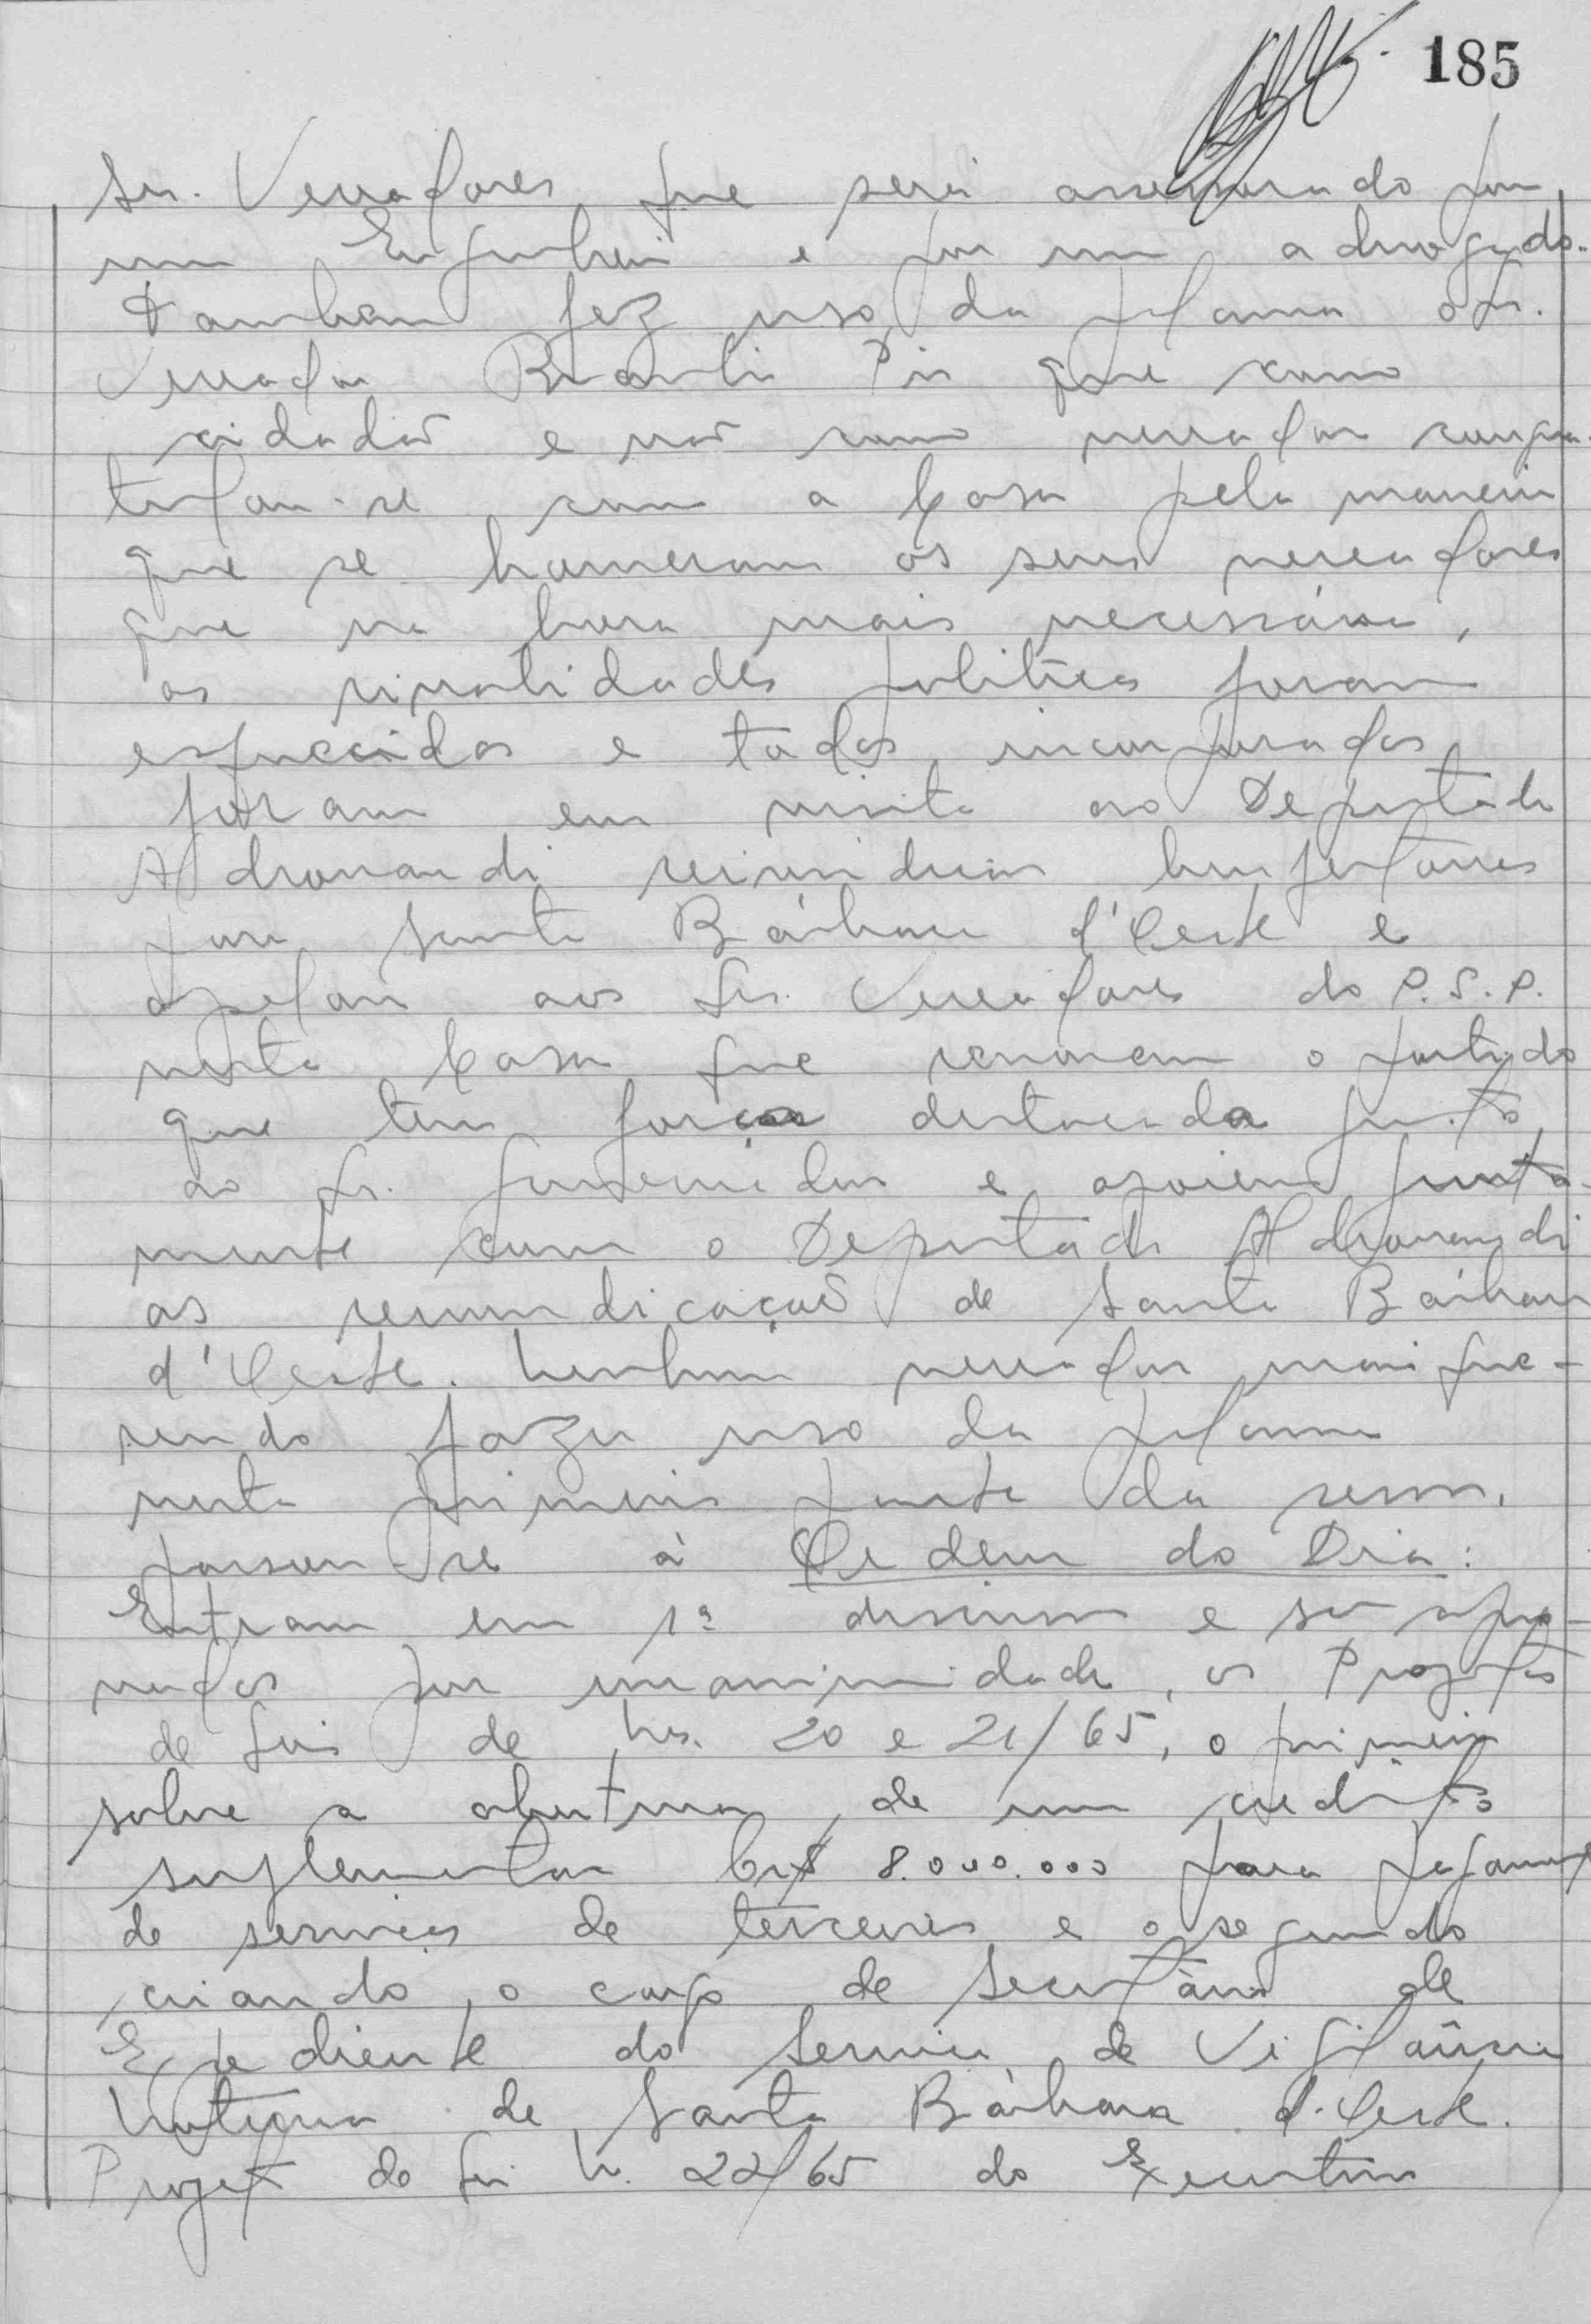 185
Srs. Vereadores que será assessorado por
um Engenheiro e por um advogado.
Também fez uso da palavra o Sr.
Vereador Braulio Pio que como
cidadão e não como vereador congra-
tular-se com a Casa pela maneira
que se houveram os seus vereadores
que na hora mais necessária,
as rivalidades politicas foram
esquecidas e todos incorporados
foram em visita ao Deputado
Aldrovandi reivindicar benfeitorias
para Santa Bárbara d'Oeste e
apelar aos Srs. Vereadores do P.S.P.
nesta Casa que renovem o partido
que tem força destacada junto
ao Sr. Governador e apoiem junta-
mente com o Deputado Aldrovandi
as reivindicação de Santa Bárbara
d'Oeste. Nenhum vereador mais que-
rendo fazer uso da palavra
nesta primeira parte da sessão,
passou-se à Ordem do Dia:
Entram em 1ª discussão e são apro-
vados por unanimidade, os Projetos
de Lei de Nrs. 20 e 21/65, o primeiro
sobre a abertura de um credito
suplementar Cr$ 8.000.000 para pagamento
de serviços de terceiros e o segundo
criando o cargo de Secretário de
Expediente do Serviço de Vigilância
Noturna de Santa Bárbara d'Oeste.
Projeto de Lei N. 22/65 do Executivo